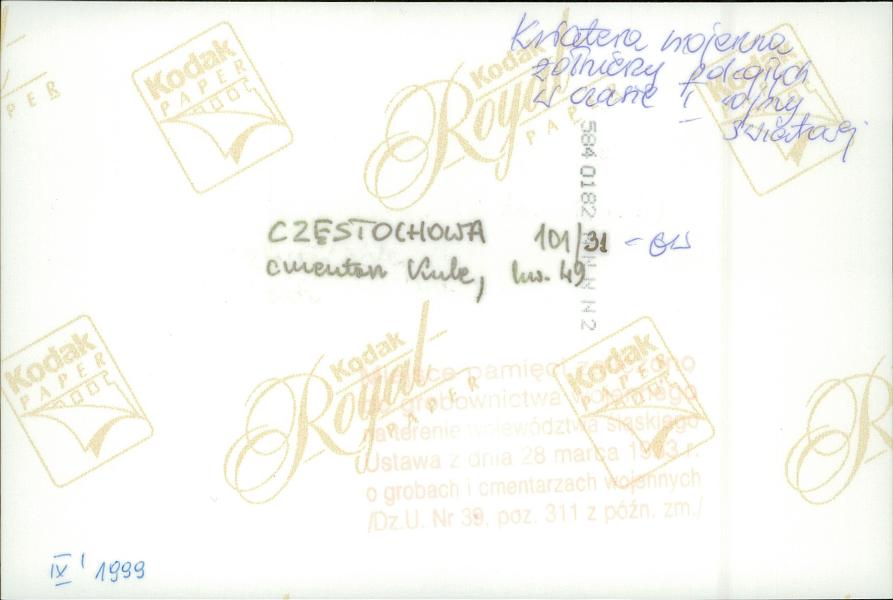 Kwatera wojenna
żołnierzy poległych
w czasie I wojny
światowej
584 0182
CZĘSTOCHOWA 101/31 - GW
cmentarz Kule, kw. 49
Miejsce pamięci
grobownictwa wojennego
na terenie województwa śląskiego
Ustawa z dnia 28 marca 1933 r.
o grobach i cmentarzach wojennych
/Dz.U. Nr 39, poz. 311 z późn. zm./
IX' 1999
Kodak
PAPER
Kodak
Royal
PAPER
Kodak
PAPER
Kodak
PAPER
Kodak
Royal
PAPER
Kodak
PAPER